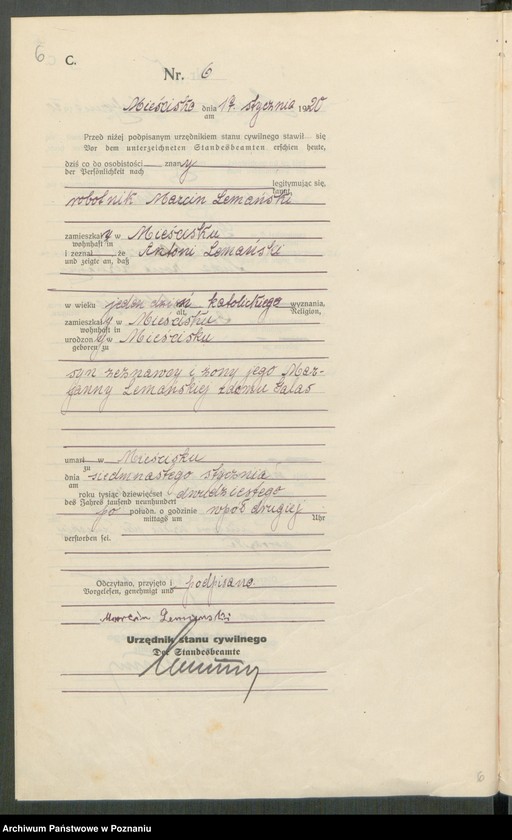 6
C.
Nr. 6
Mieścisko dnia 17. stycznia 1920
am
Przed niżej podpisanym urzędnikiem stanu cywilnego stawił się
Vor dem unterzeichneten Standesbeamten erschien heute,
dziś co do osobistości znany
der Persönlichkeit nach
legitymując się,
kannt,
robotnik Marcin Lemański
zamieszkały w Mieścisku
wohnhaft in
i zeznał że Antoni Lemański
und zeigte an, daß
w wieku jeden dzień katolickiego wyznania,
alt, Religion,
zamieszkały w Mieścisku
wohnhaft in
urodzony w Mieścisku
geboren zu
syn zeznawcy i żony jego Mar-
janny Lemańskiej z domu Galas
umarł w Mieścisku
zu
dnia siedmnastego stycznia
am
roku tysiąc dziewięćset dwudziestego
des Jahres tausend neunhundert
po połudn. o godzinie wpół drugiej
mittags um Uhr
verstorben sei.
Odczytano, przyjęto i podpisano.
Vorgelesen, genehmigt und
Marcin Lemanski
Urzędnik stanu cywilnego
Der Standesbeamte
6
Archiwum Państwowe w Poznaniu